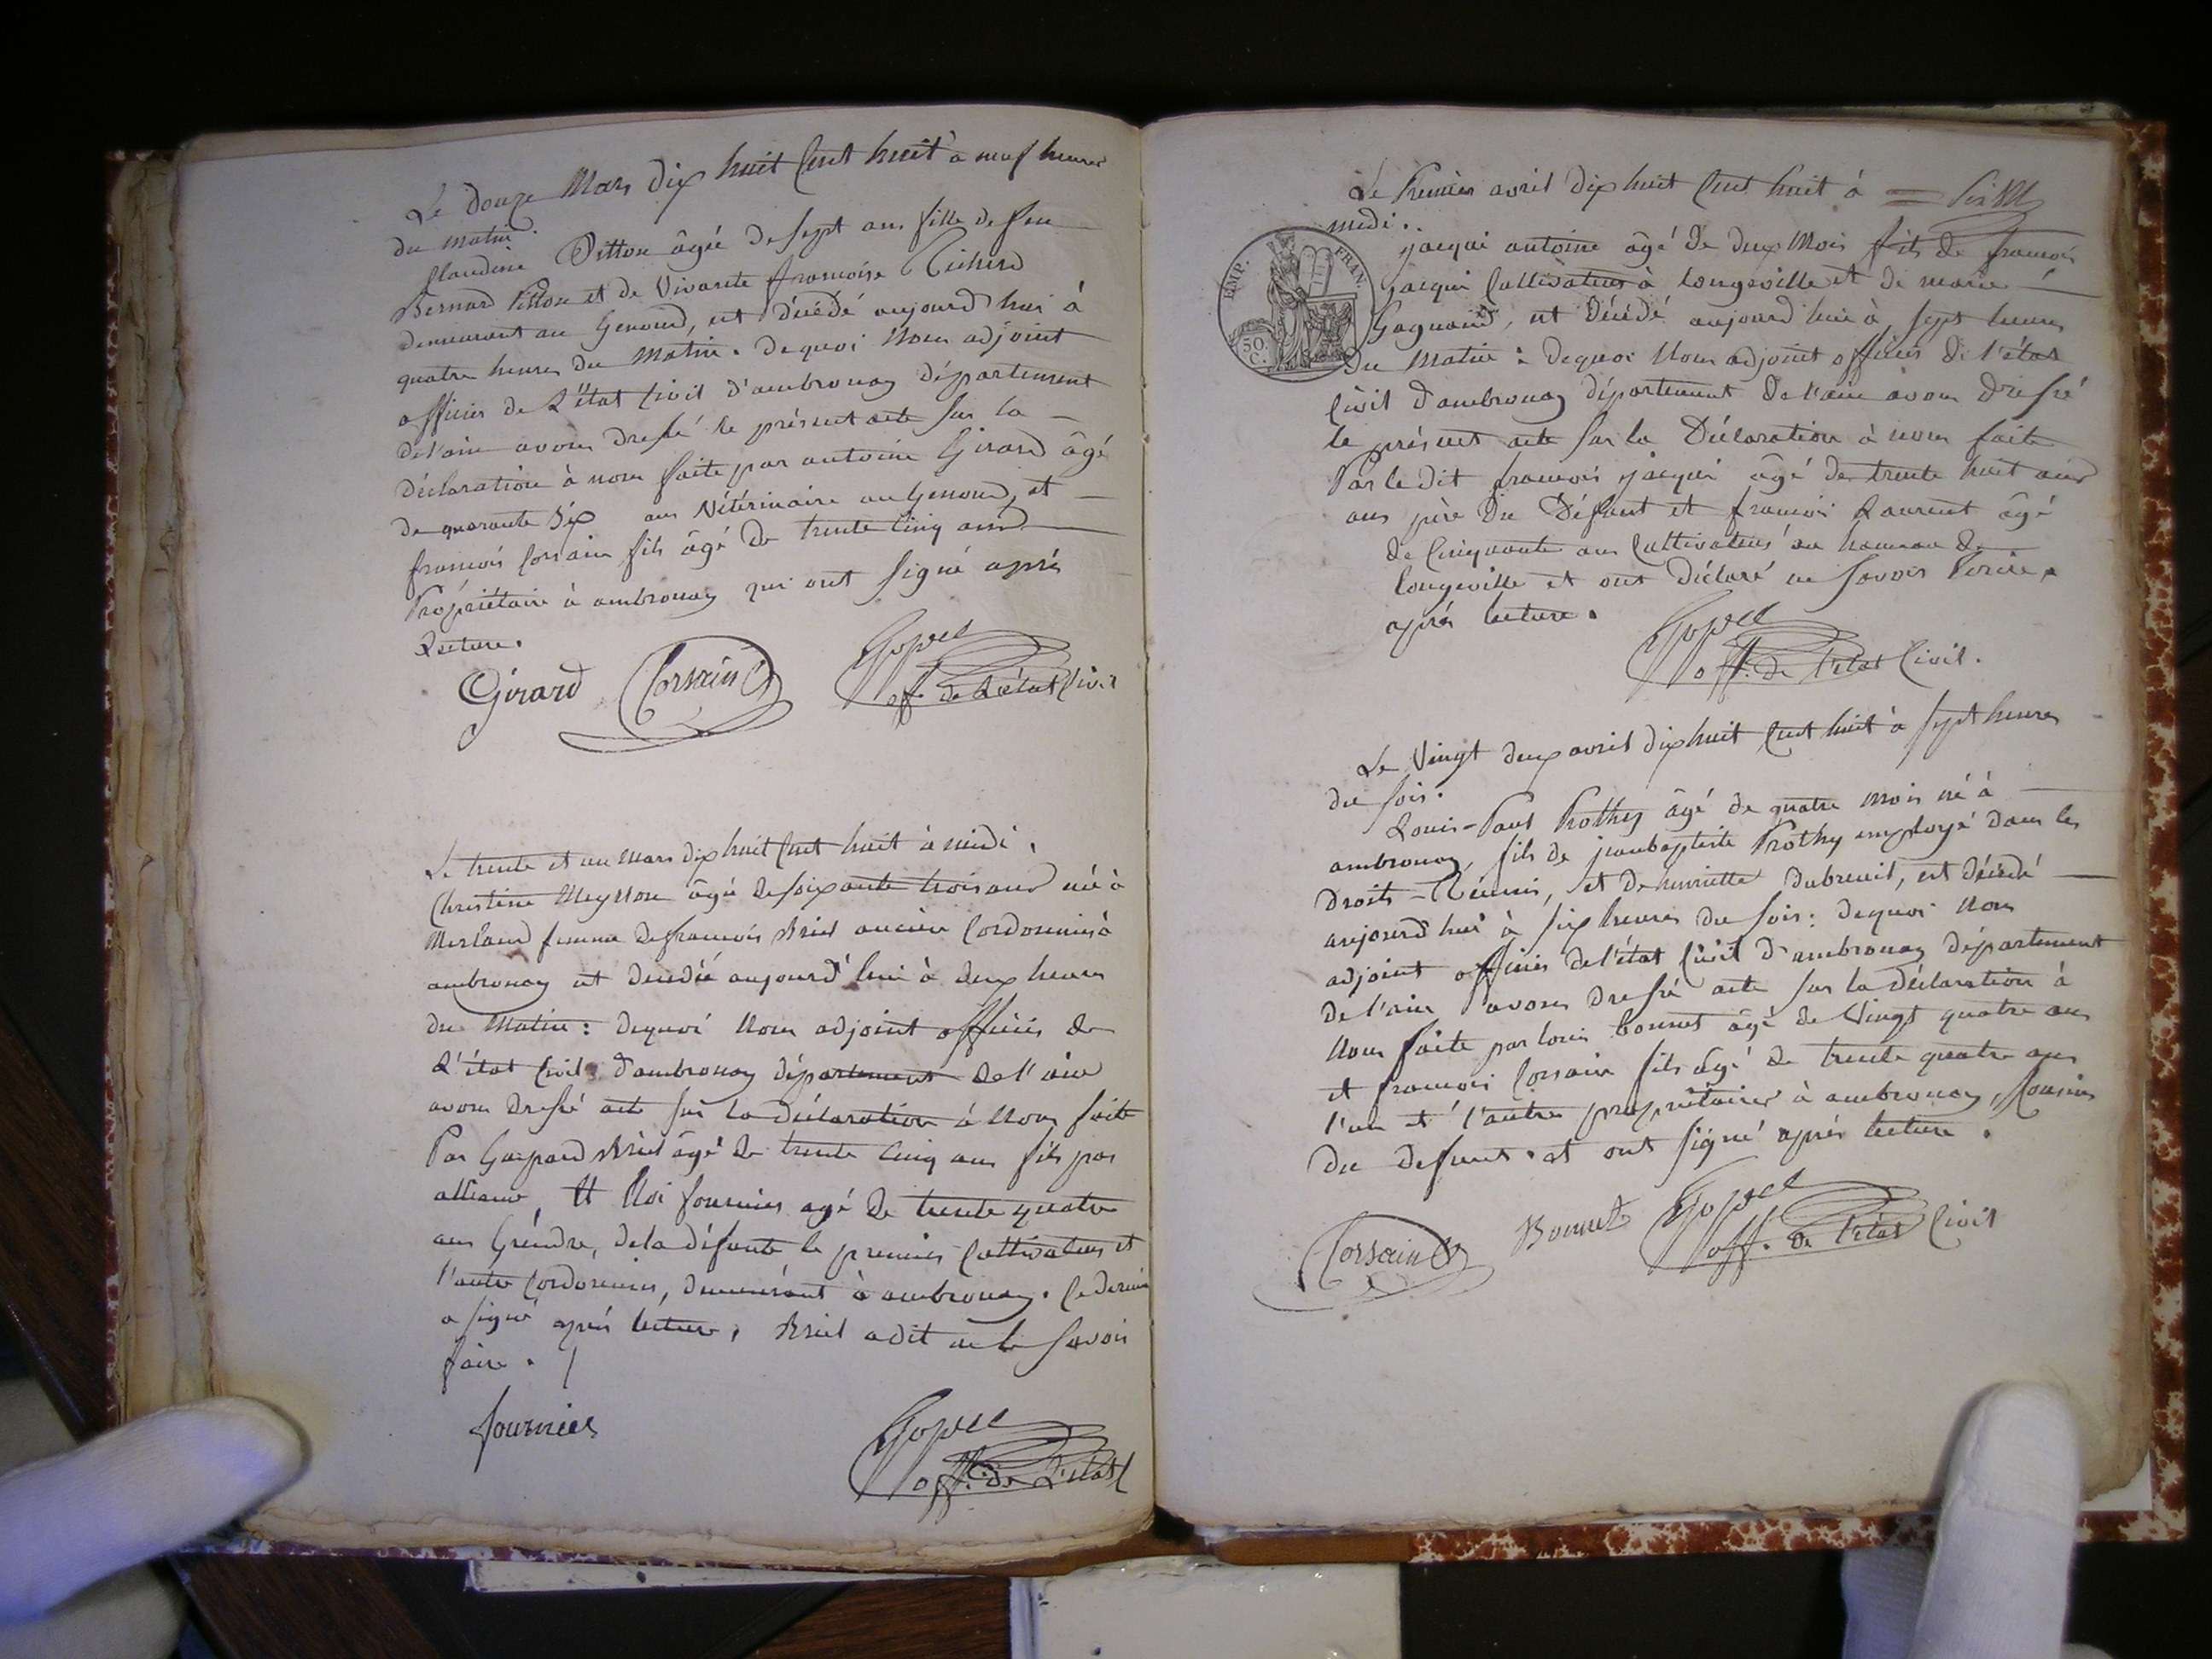 Le douze Mars dix huit Cent huit à neuf heures
du matin.
Claudine Pitton âgée de sept ans fille de feu
Bernard Pitton et de Vivante françoise Richerd
demeurant au Genoud, est décédé aujourd'hui à
quatre heures du Matin. dequoi Nous adjoint
officier de L'état Civil d'ambronay département
de l'ain avons dressé le présent acte sur la
déclaration à nous faite par antoine Girard âgé
de quarante six ans Vétérinaire au Genoud, et
françois Corsain fils âgé de trente Cinq ans
Propriétaire à ambronay qui ont signé après
Lecture.
Girard Corsain
off. de L'état Civil
Le trente et un Mars dix huit Cent huit à midi.
Christine Meysson âgée de soixante trois ans née à
femme de françois ancien Cordonnier à
ambronay est décédée aujourd'hui à deux heures
du Matin : dequoi Nous adjoint officier de
L'état Civil d'ambronay département de l'ain
avons dressé acte sur la déclaration à Nous faite
Par Gaspard âgé de trente Cinq ans fils par
alliance, Et fournier agé de trente quatre
ans Gendre, de la défunte le premier Cultivateur et
l'autre Cordonnier, demeurant à ambronay. Ce dernier
a signé après lecture, a dit ne le savoir
faire.
fournier
off. de L'état C
Le Premier avril dix huit Cent huit à
midi.
jacqui antoine âgé de deux Mois fils de françois
jacqui Cultivateur à longeville et de marie
Gagnand, est Décédé aujourd'hui à sept heures
Du Matin : dequoi Nous adjoint officier de l'état
Civil d'ambronay département de l'ain avons dressé
le présent acte sur la Déclaration à nous faite
Par le dit françois jacqui âgé de trente huit ans
ans père du Défunt et françois Laurent âgé
de Cinquante ans Cultivateur au hameau de
longeville et ont Déclaré ne savoir Ecrire,
après lecture.
off. de l'état Civil.
EMP. FRAN.
50
C.
Le Vingt deux avril dix huit Cent huit à sept heures
du soir.
Louis-Paul Prothy âgé de quatre mois né à
ambronay, fils de jeanbaptiste Prothy employé dans les
Droits-Réunis, et de henriette dubreuil, est décédé
aujourd'hui à six heures du soir : dequoi Nous
adjoint officier de l'état Civil d'ambronay département
de l'ain avons dressé acte sur la déclaration à
Nous faite par louis bonnet âgé de Vingt quatre ans
et françois Corsain fils âgé de trente quatre ans
l'un et l'autre propriétaires à ambronay, Cousins
du defunt. et ont signé après lecture.
Corsain Bonnet
off. de l'état Civil